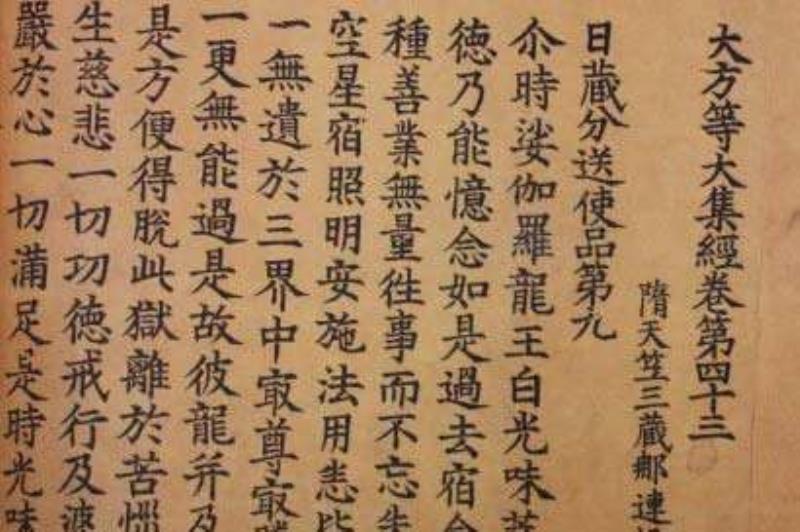 大方等大集經卷第四十三
隋天竺三藏那連
日藏分送使品第九
尒時娑伽羅龍王白光味菩
德乃能憶念如是過去宿命
種善業無量往事而不忘失
空星宿照明安施法用悉皆
一無遺於三界中㝡尊㝡勝
一更無能過是故彼龍并及
是方便得脫此獄離於苦惱
生慈悲一切功德戒行及婆
嚴於心一切滿足是時光味